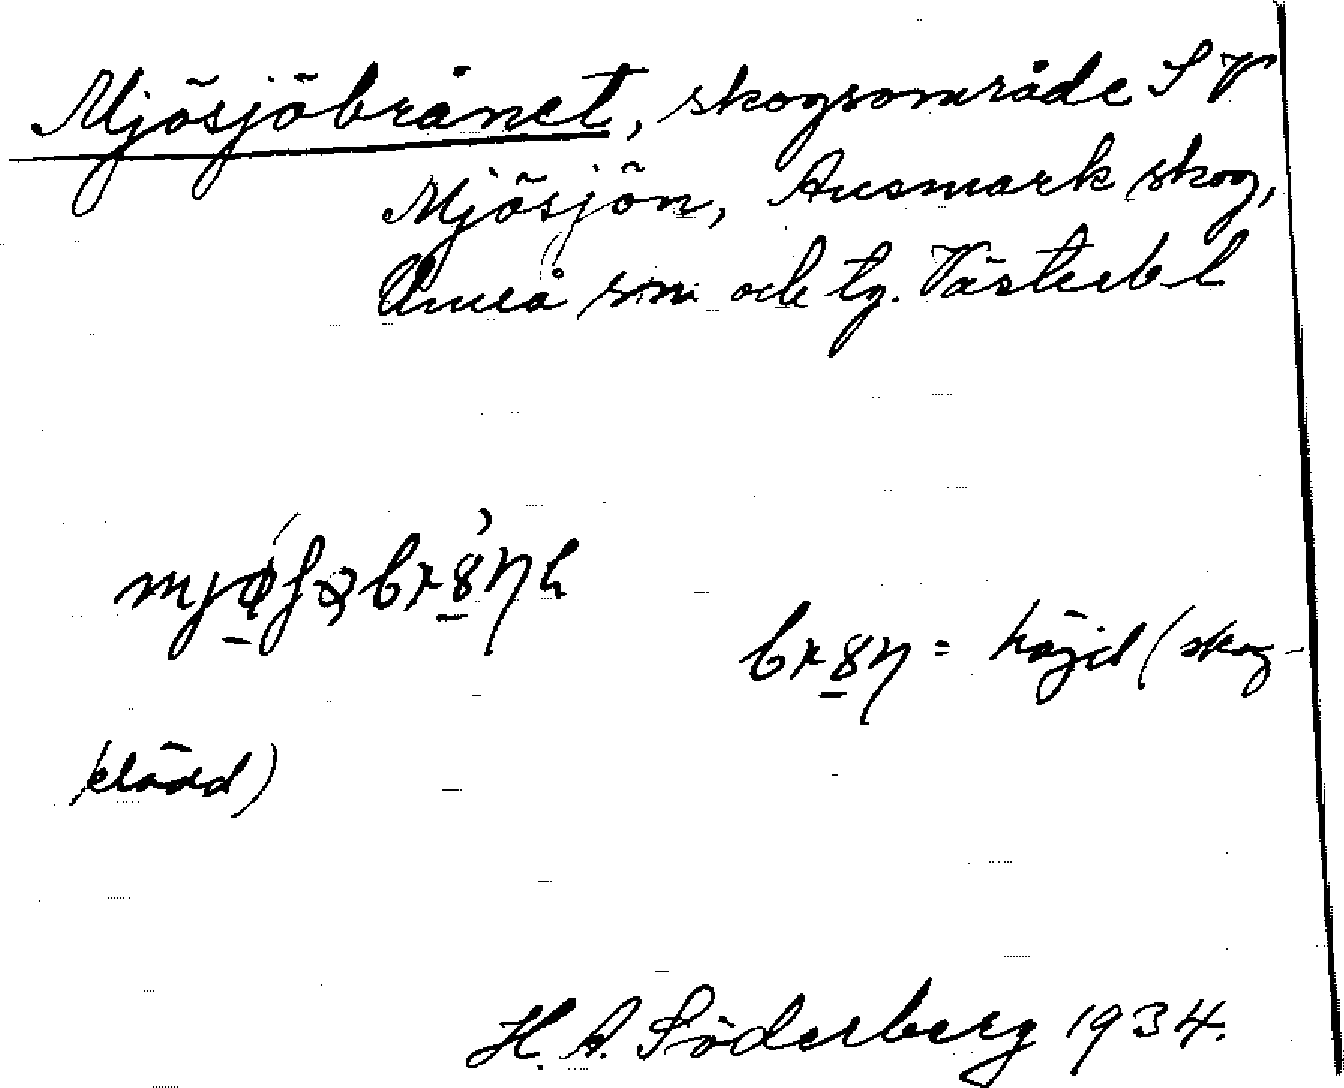 Mjösjöbrånet, skogsområde S V
Mjösjön, Ansmark skog,
Umeå sn och tg. Västerb. l
= höjd (skog-
klädd)
H. A. Söderberg 1934.